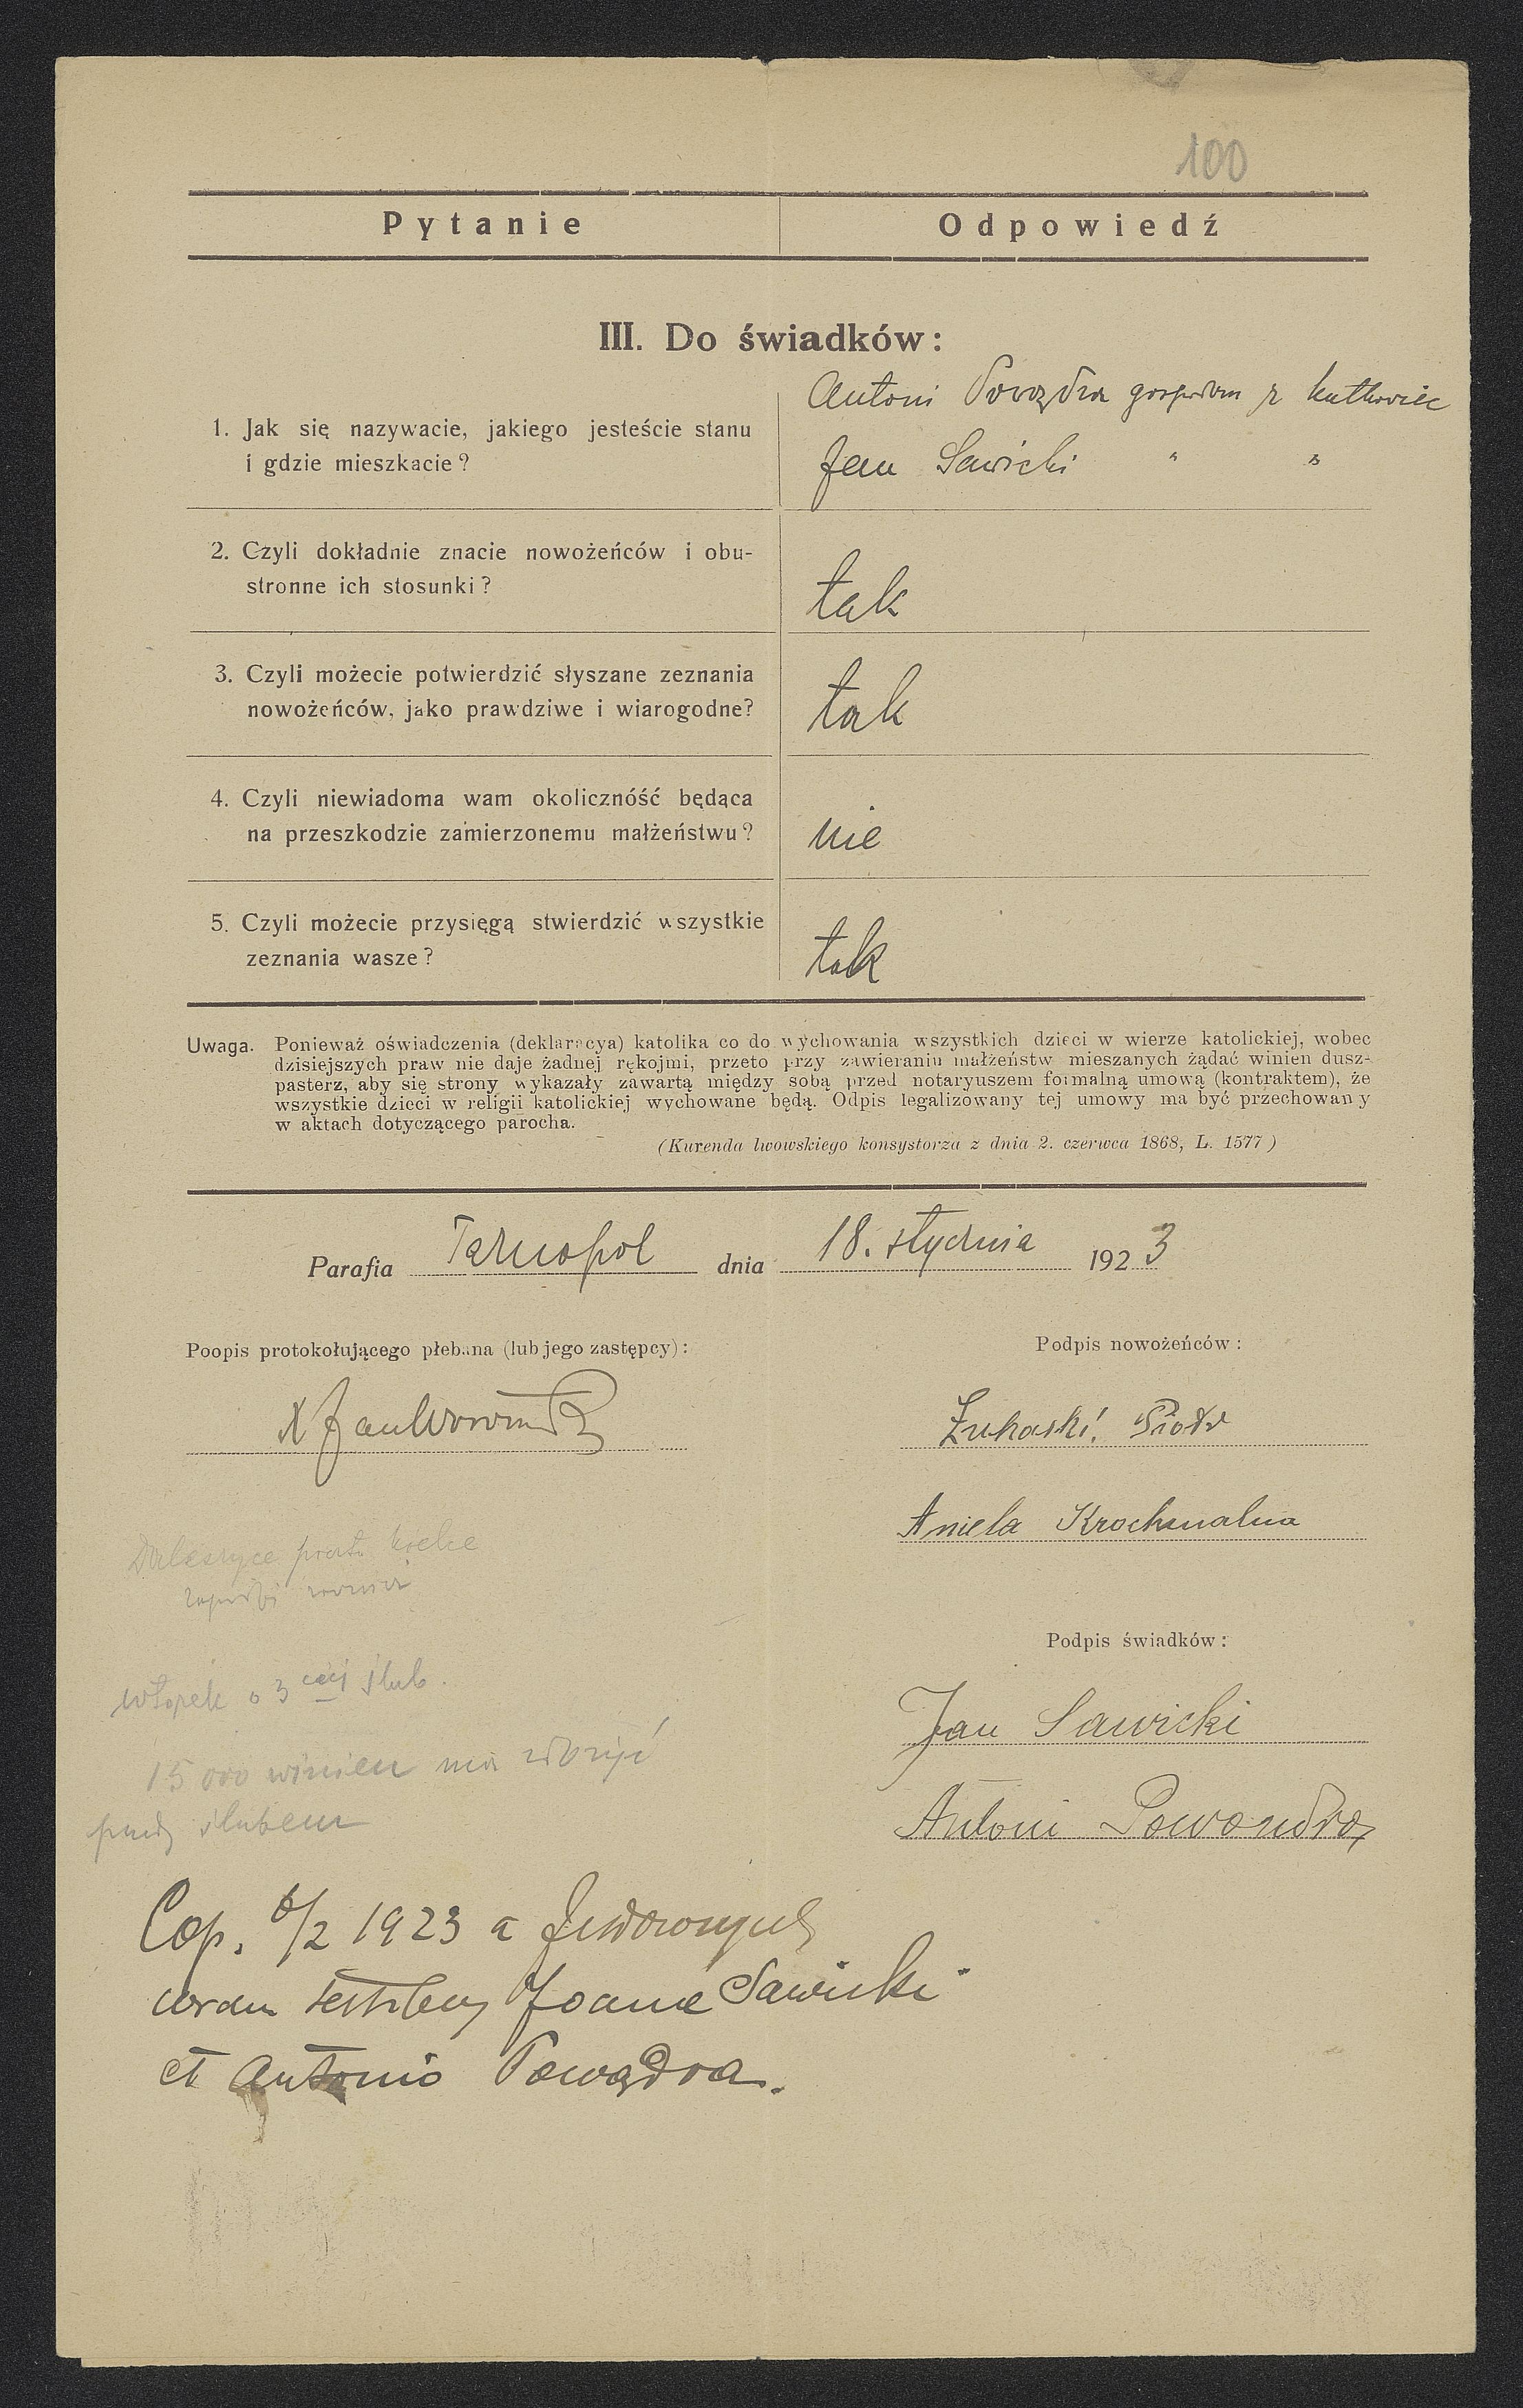 100
Pytanie
Odpowiedź
III. Do świadków:
1. Jak się nazywacie, jakiego jesteście stanu
i gdzie mieszkacie?
Antoni Powązdra gospodarz z Kutkowiec
Jan Sawicki " "
2. Czyli dokładnie znacie nowożeńców i obu-
stronne ich stosunki?
tak
3. Czyli możecie potwierdzić słyszane zeznania
nowożeńców, jako prawdziwe i wiarogodne?
tak
4. Czyli niewiadoma wam okolicznóść będąca
na przeszkodzie zamierzonemu małżeństwu?
nie
5. Czyli możecie przysięgą stwierdzić wszystkie
zeznania wasze?
tak
Uwaga. Ponieważ oświadczenia (deklaracya) katolika co do wychowania wszystkich dzieci w wierze katolickiej, wobec
dzisiejszych praw nie daje żadnej rękojmi, przeto przy zawieraniu małżeństw mieszanych żądać winien dusz-
pasterz, aby się strony wykazały zawartą między sobą przed notaryuszem formalną umową (kontraktem), że
wszystkie dzieci w religii katolickiej wychowane będą. Odpis legalizowany tej umowy ma być przechowany
w aktach dotyczącego parocha.
(Kurenda lwowskiego konsystorza z dnia 2. czerwca 1868, L. 1577)
Parafia Tarnopol dnia 18. stycznia 1923
Poopis protokołującego plebana (lub jego zastępcy):
Podpis nowożeńców:
X Jan
Żukaski Piotr
Aniela Krochmalna
Daleszyce Kielce
Podpis świadków:
wtorek o 3 ciej ślub.
Jan Sawicki
15 000 winien
ślubem
Antoni Powondra
Cop. 6/2 1923 a
coram testibus Joanne Sawicki
et Antonio Powązdra.